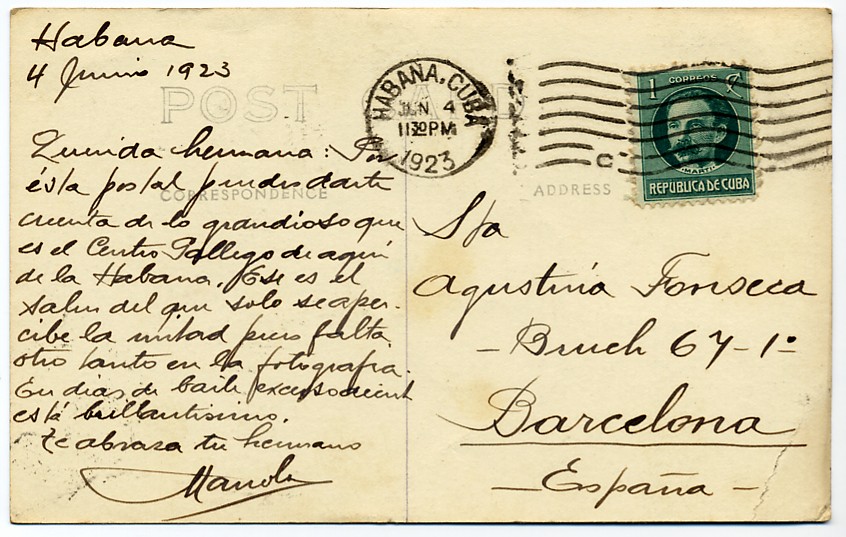 Habana
4 Junio 1923
POST CARD
CORRESPONDENCE
Querida hermana: Por
ésta postal pendrás darte
cuenta de lo grandioso que
es el Centro Gallego de aquí
de la Habana. Ese es el
salon del que solo se aper-
cibe la mitad pues falta
otro tanto en la fotografia.
En dias de baile
está brillantisimo.
Te abraza tu hermano
Manolo
HABANA, CUBA
JUN 4
1130 PM
1923
1 CORREOS
MARTI
REPUBLICA DE CUBA
ADDRESS
Sta
Agustina Fonseca
- Bruch 67-1º
Barcelona
- España -